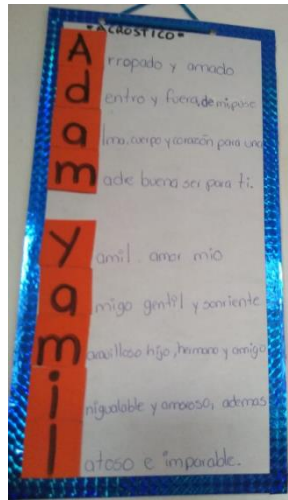 "ACROSTICO"
Arropado y amado
dentro y fuera, de mi puse
alma, cuerpo y corazón para una
made buena ser para ti.
Yamil. amor mio
amigo gentil y sonriente
maravilloso hijo, hermano y amigo
inigualable y amoroso, ademas
latoso e imparable.